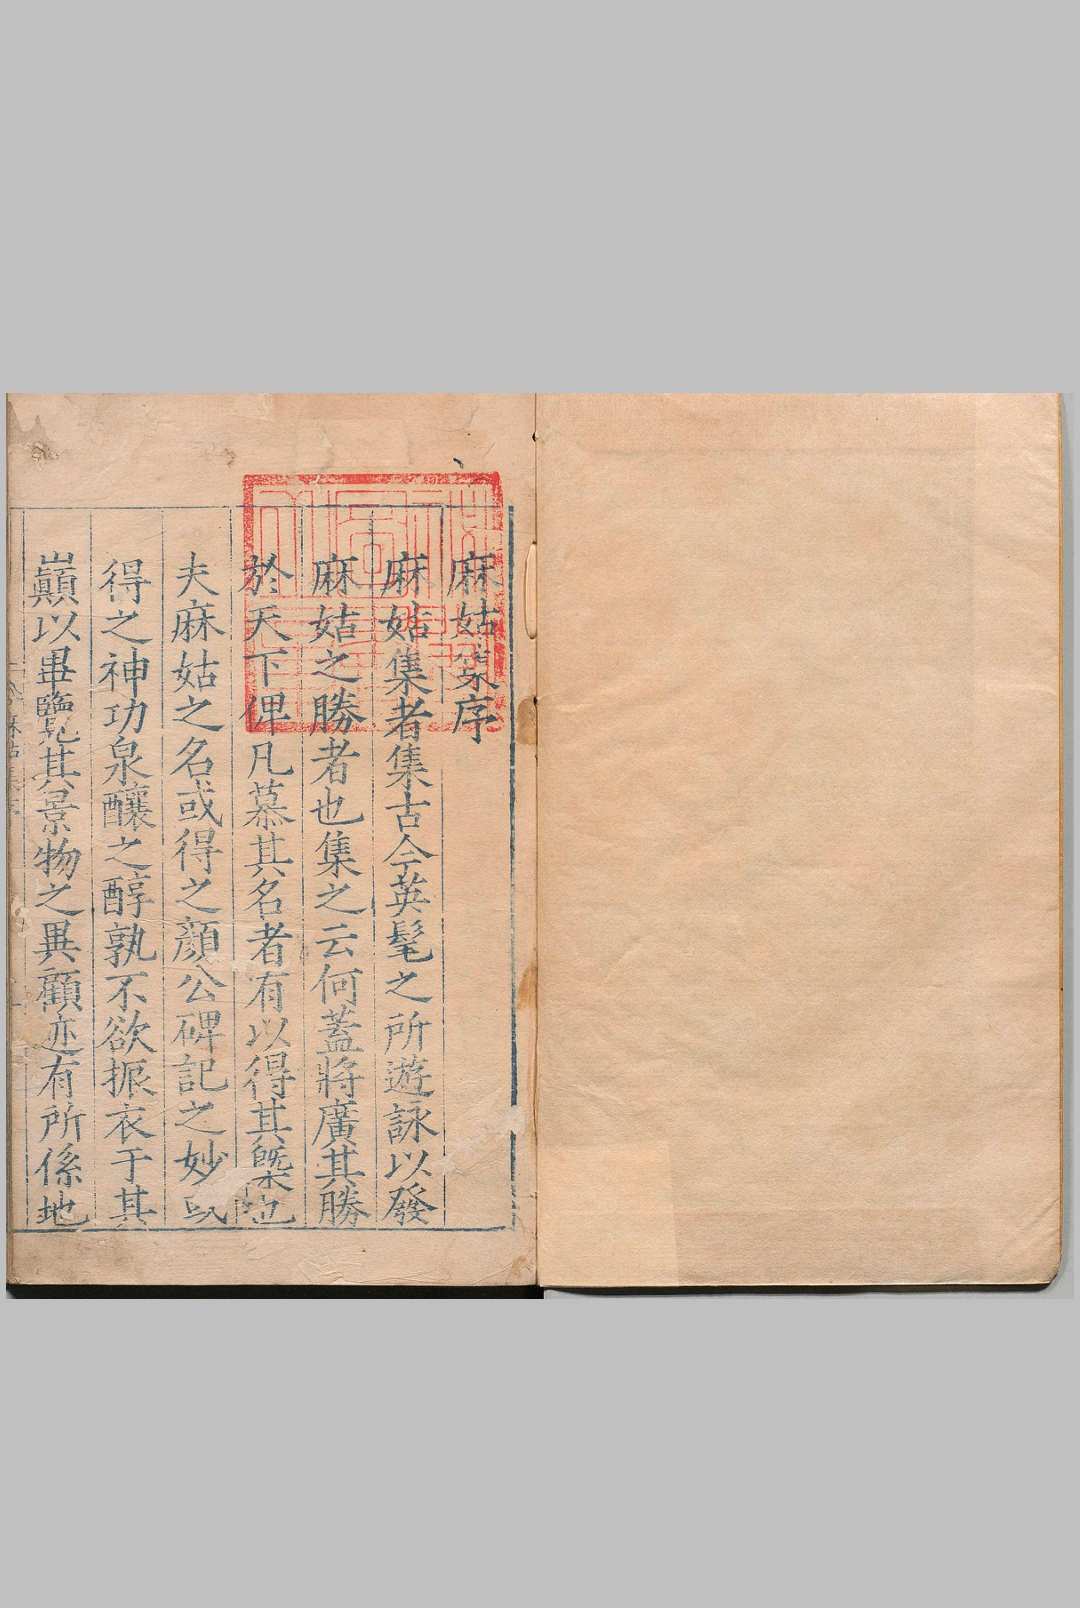 麻姑集序
麻姑集者集古今英髦之所遊詠以發
麻姑之勝者也集之云何蓋將廣其勝
於天下俾凡慕其名者有以得其槩也
夫麻姑之名或得之顔公碑記之妙或
得之神功泉釀之醇孰不欲振衣于其
巔以畢覽其景物之異顧迹有所係地